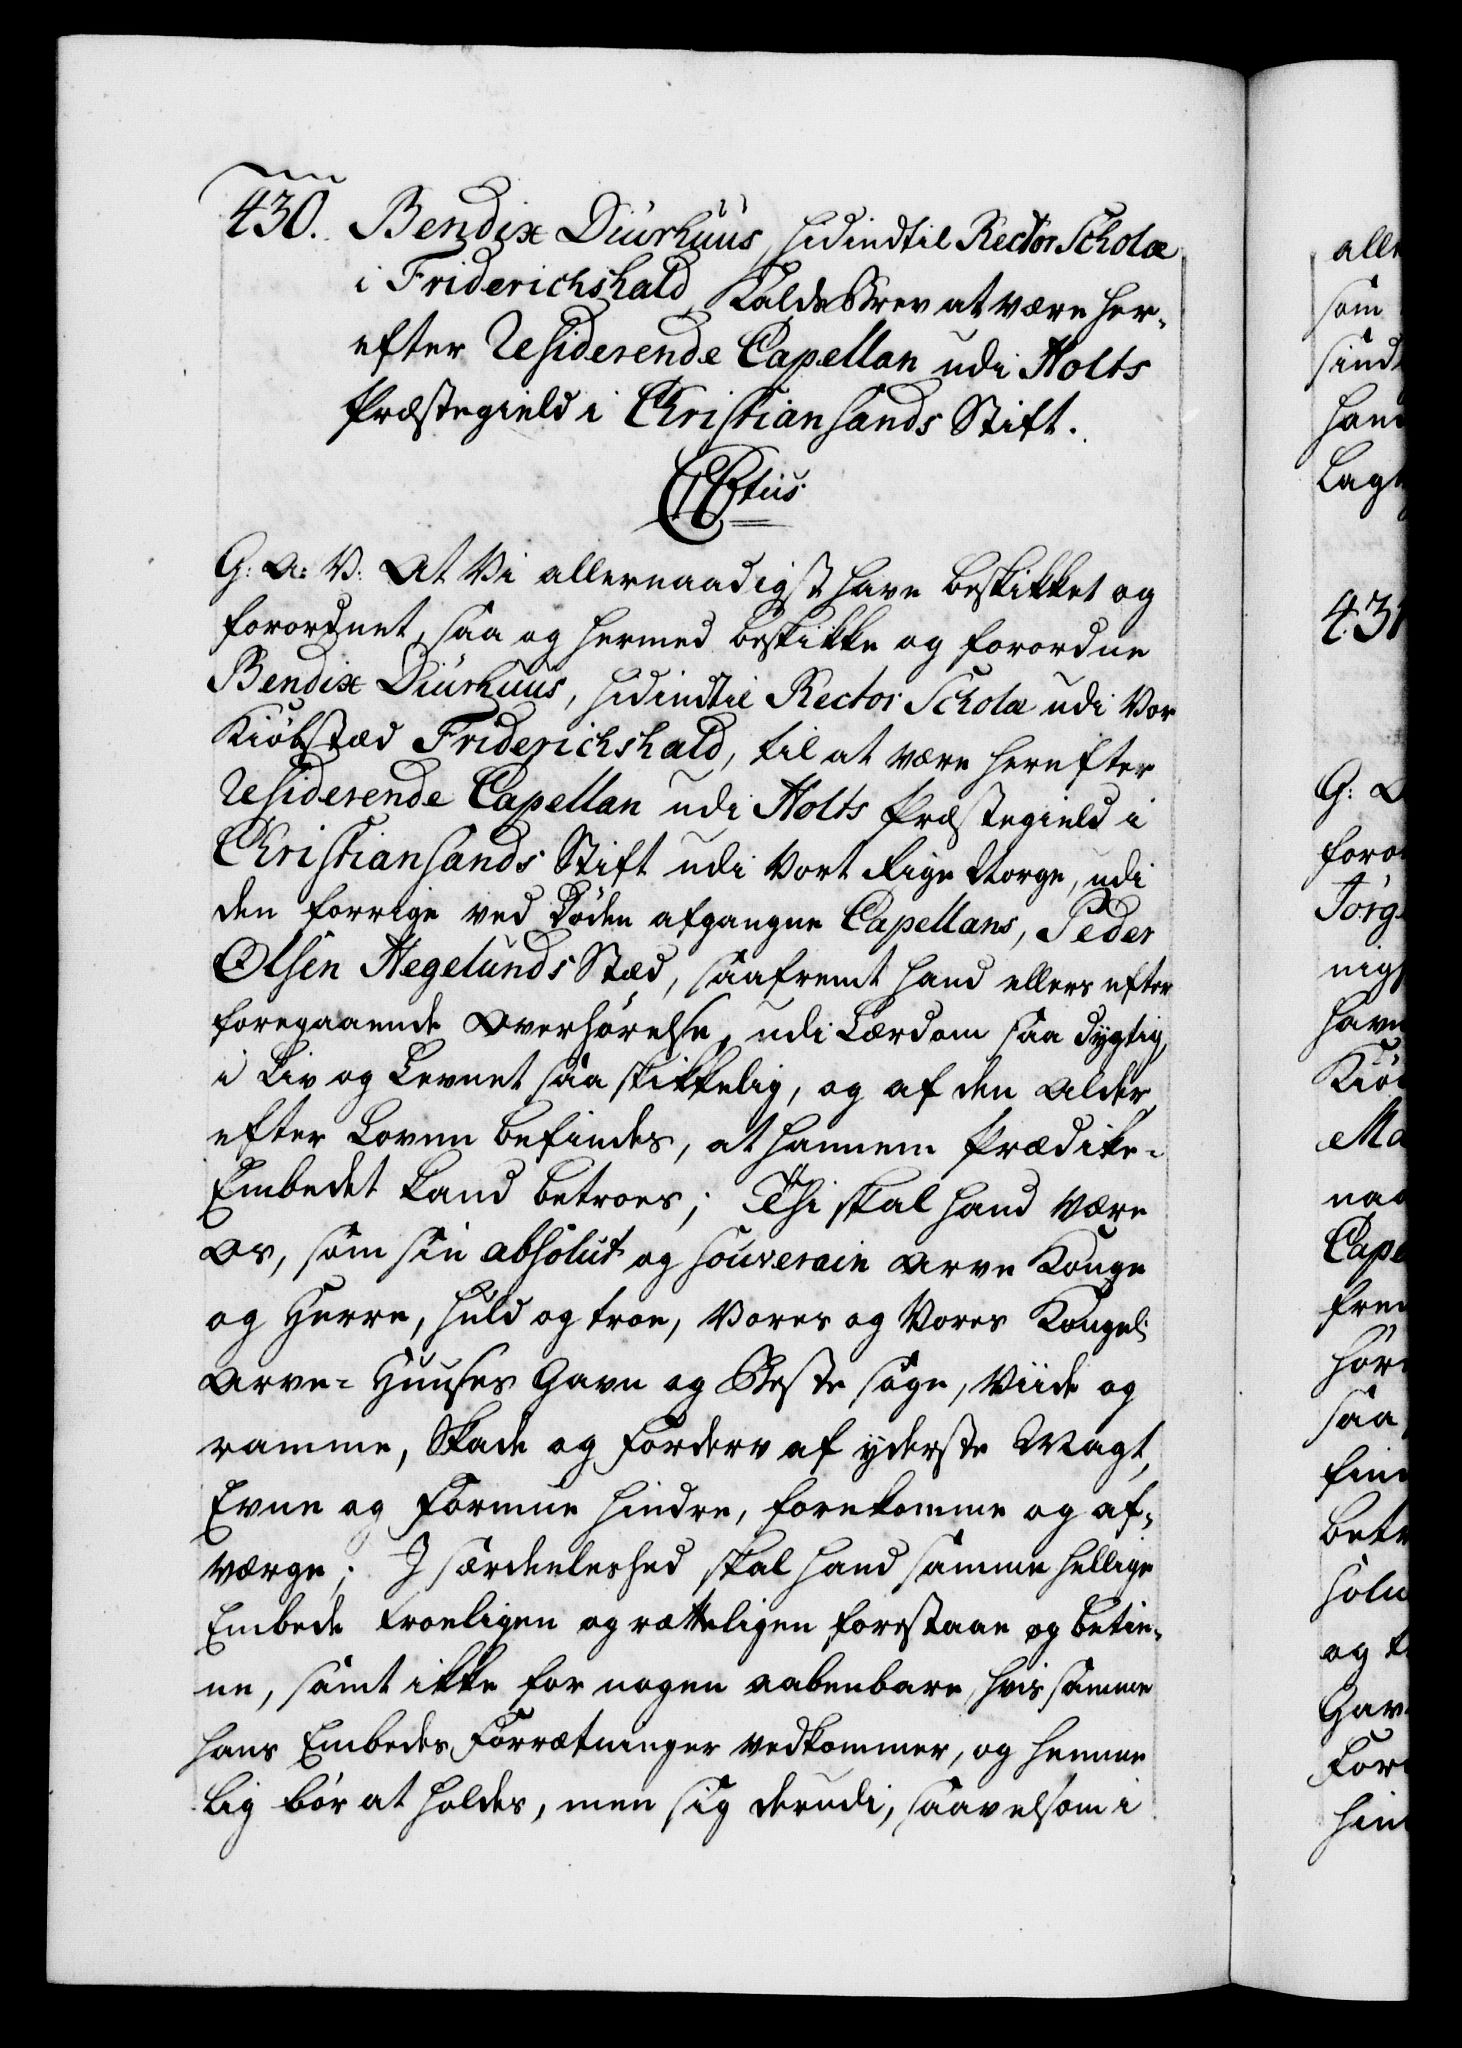 430. Bendix Diurhuus, hidindtil Rector Scholæ
i Friderichshald, Kaldsbrev at være her-
efter Residerende Capellan udi Holts
Præstegield i Christiansands Stift.
G: A: V: At Vi allernaadigst have beskikket og
forordnet, saa og hermed beskikke og forordne
Bendix Diurhuus, hidindtil Rector Scholæ udi Vor
Kiøbstæd Friderichshald, til at være herefter
Residerende Capellan udi Holts Præstegield i
Christiansands Stift udi Vort Rige Norge, udi
den forrige ved Døden afgangne Capellans, Peder
Olsen Hegelunds Stæd, saafremt hand ellers efter
foregaaende Overhørelse, udi Lærdom saa dygtig,
i Liv og Levnet saa skikkelig, og af den Alder
efter Loven befindes, at hannem Prædike-
Embedet kand betroes; Thi skal hand være
Os, som sin absolut og souverain Arve Konge
og Herre, huld og troe, Vores og Vores Kongel:
Arve-Huuses Gavn og Beste søge, Viide og
ramme, Skade og Forderv af yderste Magt,
Evne og Formue hindre, forekomme og af-
værge; I særdeeleshed skal hand samme hellige
Embede troeligen og rætteligen forestaae og betie-
ne, samt ikke for nogen aabenbare, hvis samme
hans Embedes Forrætninger vedkommer, og hemme-
lig bør at holdes, men sig derudi, saavelsom i
alle
som
sind
han
Lagt
431
G: A
foro
Jørg
nig
havn
Kiø
Ma
naa
Cape
frem
hør
saa
fin
betr
solu
og t
Gav
For
hin